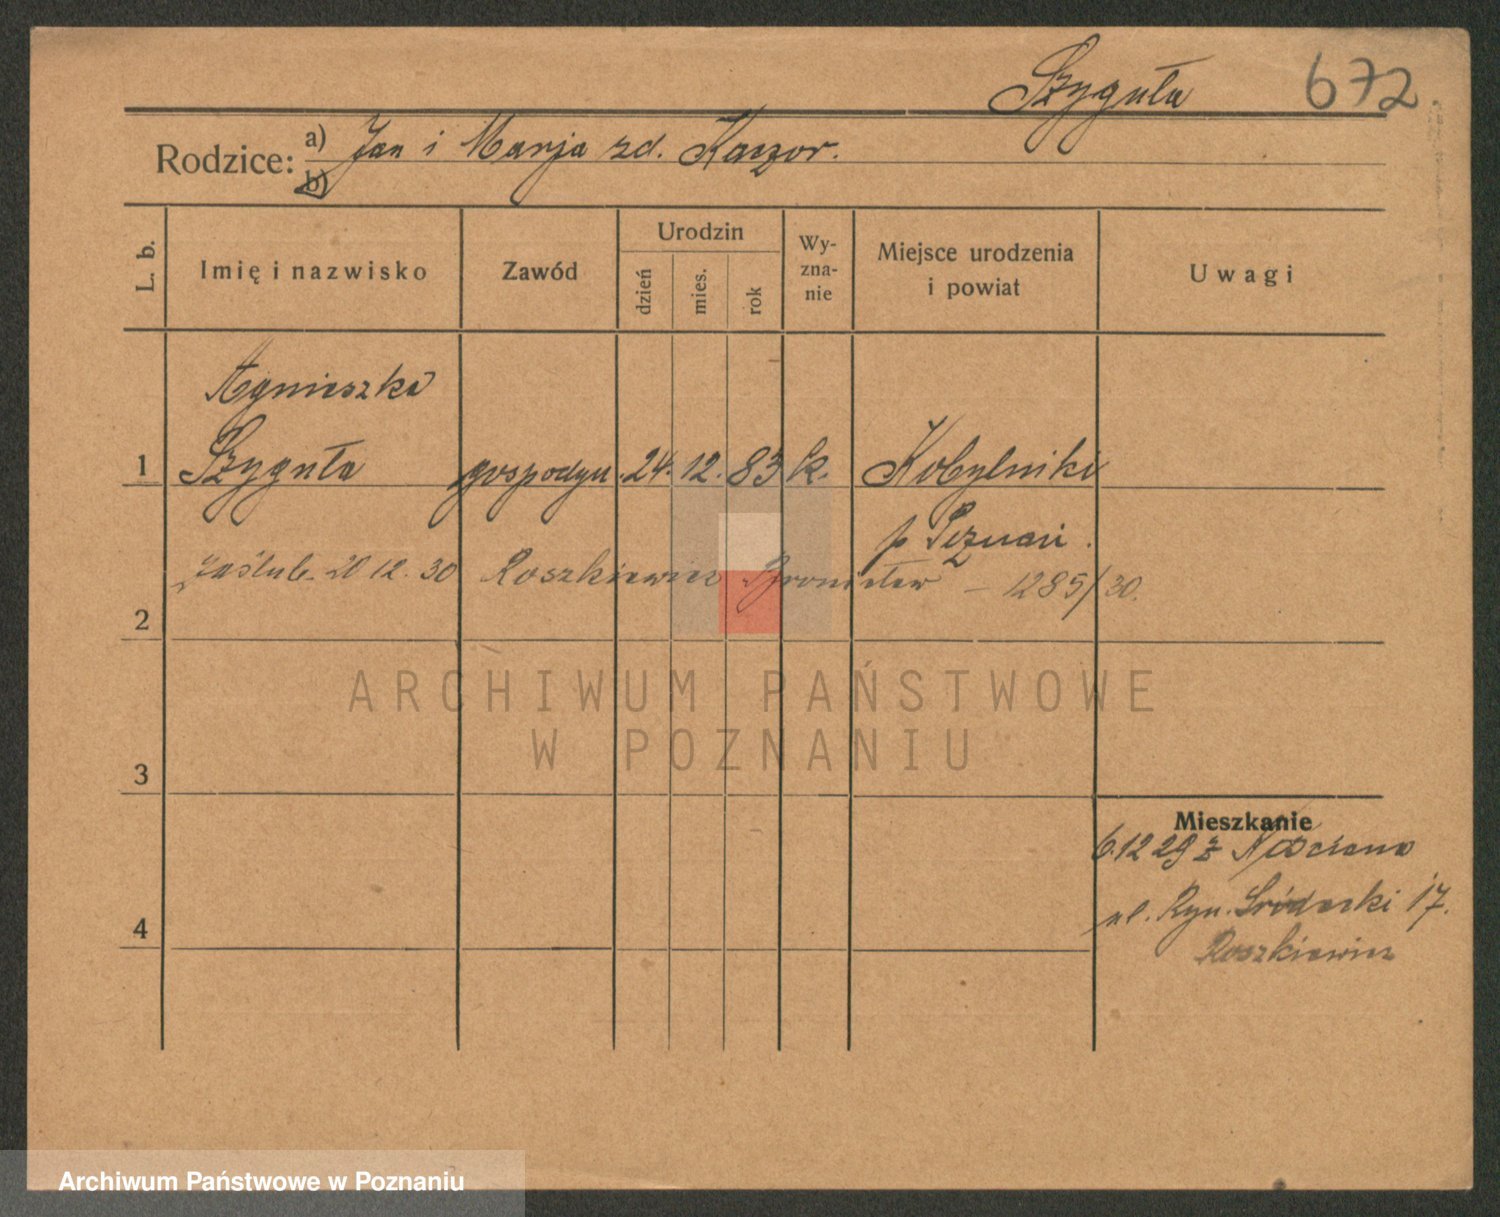 Szyguła 672
Rodzice: a) Jan i Marja zd. Kaczor.
b)
L. b. Imię i nazwisko Zawód Urodzin dzień mies. rok Wyzna-nie Miejsce urodzenia i powiat Uwagi
Agnieszka
1 Szyguła gospodyn. 24. 12. 83 k. Kobylniki
p Poznań.
zaślub. 20 12. 30 Roszkiewicz Bronisław – 1285/30.
2
ARCHIWUM PAŃSTWOWE
W POZNANIU
3
Mieszkanie
6.12 29 z Kościana
ul. Ryn. Śródecki 17.
4
Roszkiewicz
Archiwum Państwowe w Poznaniu